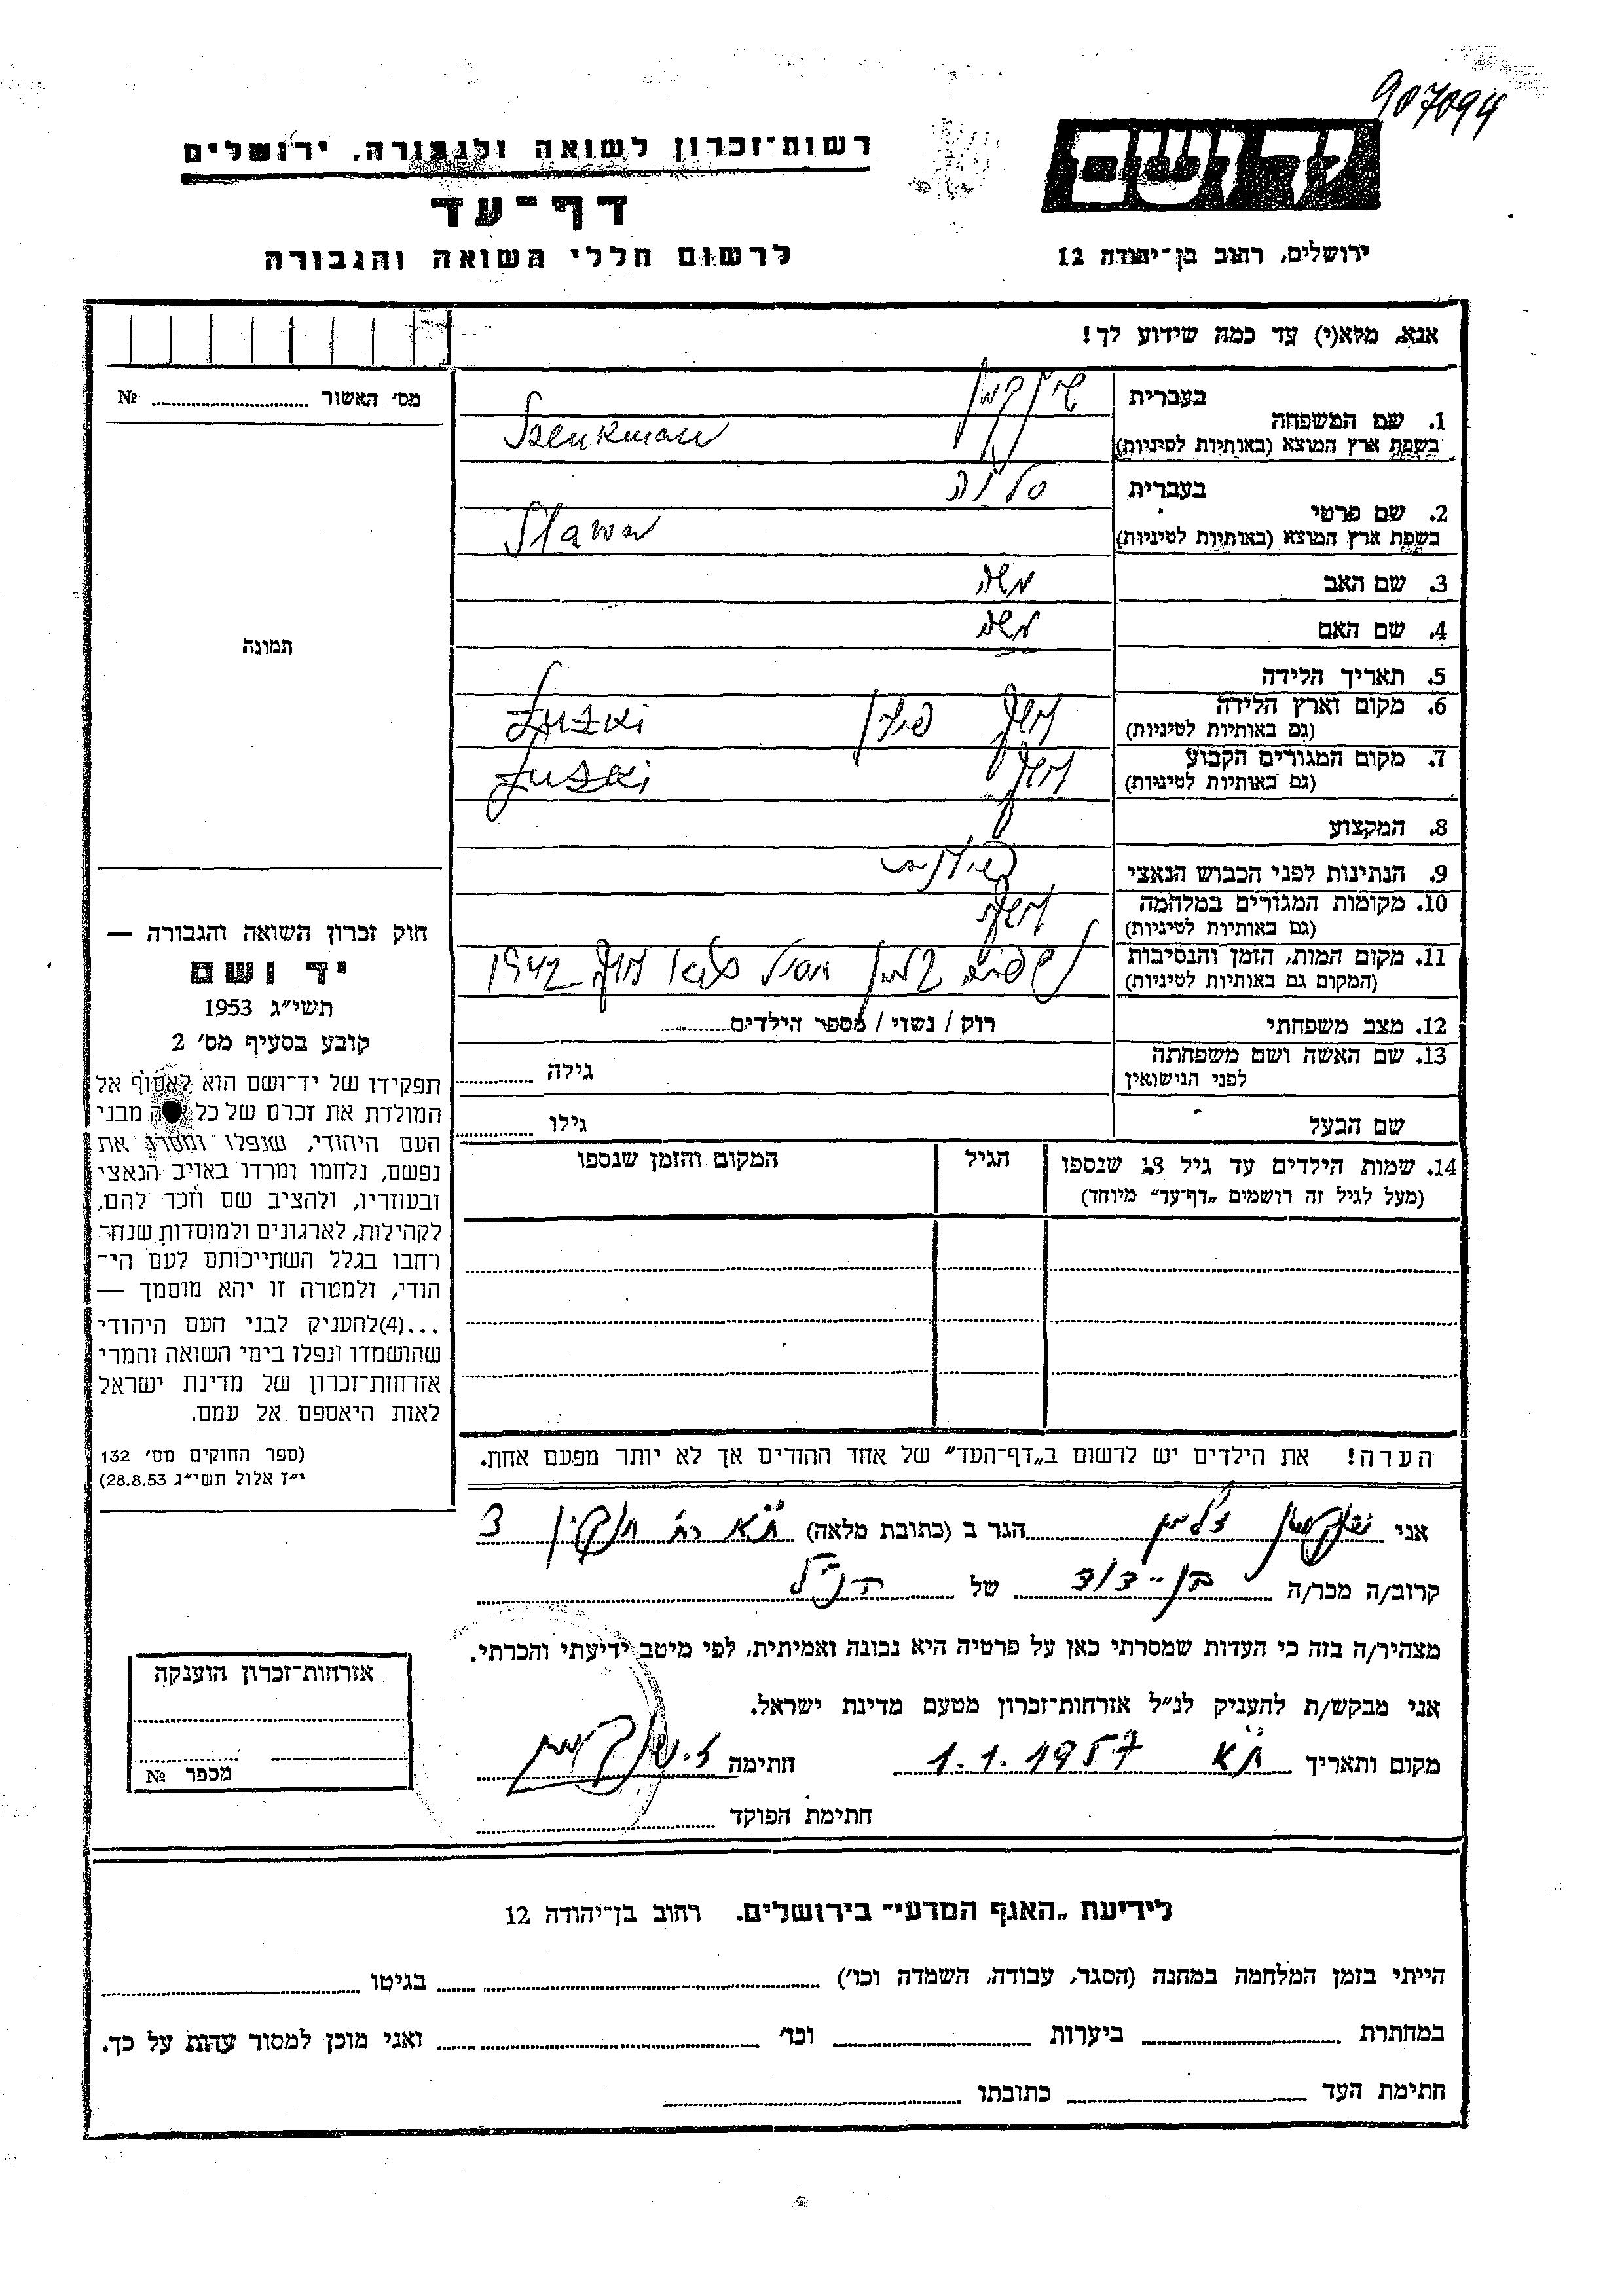 907094
רשות־זכרון לשואה ולגבורה, ירושלים
יד ושם
דף־עד
לרשום חללי השואה והגבורה
ירושלים, רחוב בן־יהודה 12
אנא, מלא(י) עד כמה שידוע לך!
מס' האשור № 
1. שם המשפחה
בעברית
בשפת ארץ המוצא (באותיות לטיניות)
Szenkman
2. שם פרטי
בעברית
בשפת ארץ המוצא (באותיות לטיניות) Slawa
3. שם האב משה
4. שם האם
5. תאריך הלידה
6. מקום וארץ הלידה
(גם באותיות לטיניות)
פולין
7. מקום המגורים הקבוע
(גם באותיות לטיניות)
8. המקצוע
9. הנתינות לפני הכבוש הנאצי
10. מקומות המגורים במלחמה
(גם באותיות לטיניות)
11. מקום המות, הזמן והנסיבות
(המקום גם באותיות לטיניות)
1942
12. מצב משפחתי רוק / נשוי / מספר הילדים
13. שם האשה ושם משפחתה
לפני הנישואין
גילה
שם הבעל גילו
14. שמות הילדים עד גיל 13 שנספו
(מעל לגיל זה רושמים „דף־עד" מיוחד)
הגיל
המקום והזמן שנספו
הערה! את הילדים יש לרשום ב„דף־העד" של אחד ההורים אך לא יותר מפעם אחת.
תמונה
חוק זכרון השואה והגבורה —
יד ושם
תשי״ג 1953
קובע בסעיף מס' 2
תפקידו של יד־ושם הוא לאסוף אל
המולדת את זכרם של כל מבני
העם היהודי, שנפלו ומסרו את
נפשם, נלחמו ומרדו באויב הנאצי
ובעוזריו, ולהציב שם וזכר להם,
לקהילות, לארגונים ולמוסדות שנח־
רחבו בגלל השתייכותם לעם הי־
הודי, ולמטרה זו יהא מוסמך —
...(4)להעניק לבני העם היהודי
שהושמדו ונפלו בימי השואה והמרי
אזרחות־זכרון של מדינת ישראל
לאות היאספם אל עמם.
(ספר החוקים מס' 132
י״ז אלול תשי״ג 28.8.53)
אני הגר ב (כתובת מלאה) ת״א 3
קרוב/ה מכר/ה בן־דוד של הנ״ל
מצהיר/ה בזה כי העדות שמסרתי כאן על פרטיה היא נכונה ואמיתית, לפי מיטב ידיעתי והכרתי.
אני מבקש/ת להעניק לנ״ל אזרחות־זכרון מטעם מדינת ישראל.
מקום ותאריך ת״א 1.1.1957 חתימה
חתימת הפוקד
אזרחות־זכרון הוענקה
מספר №
לידיעת „האגף המדעי" בירושלים. רחוב בן־יהודה 12
הייתי בזמן המלחמה במחנה (הסגר, עבודה, השמדה וכו') בגיטו
במחתרת ביערות וכו' ואני מוכן למסור עדות על כך.
חתימת העד כתובתו